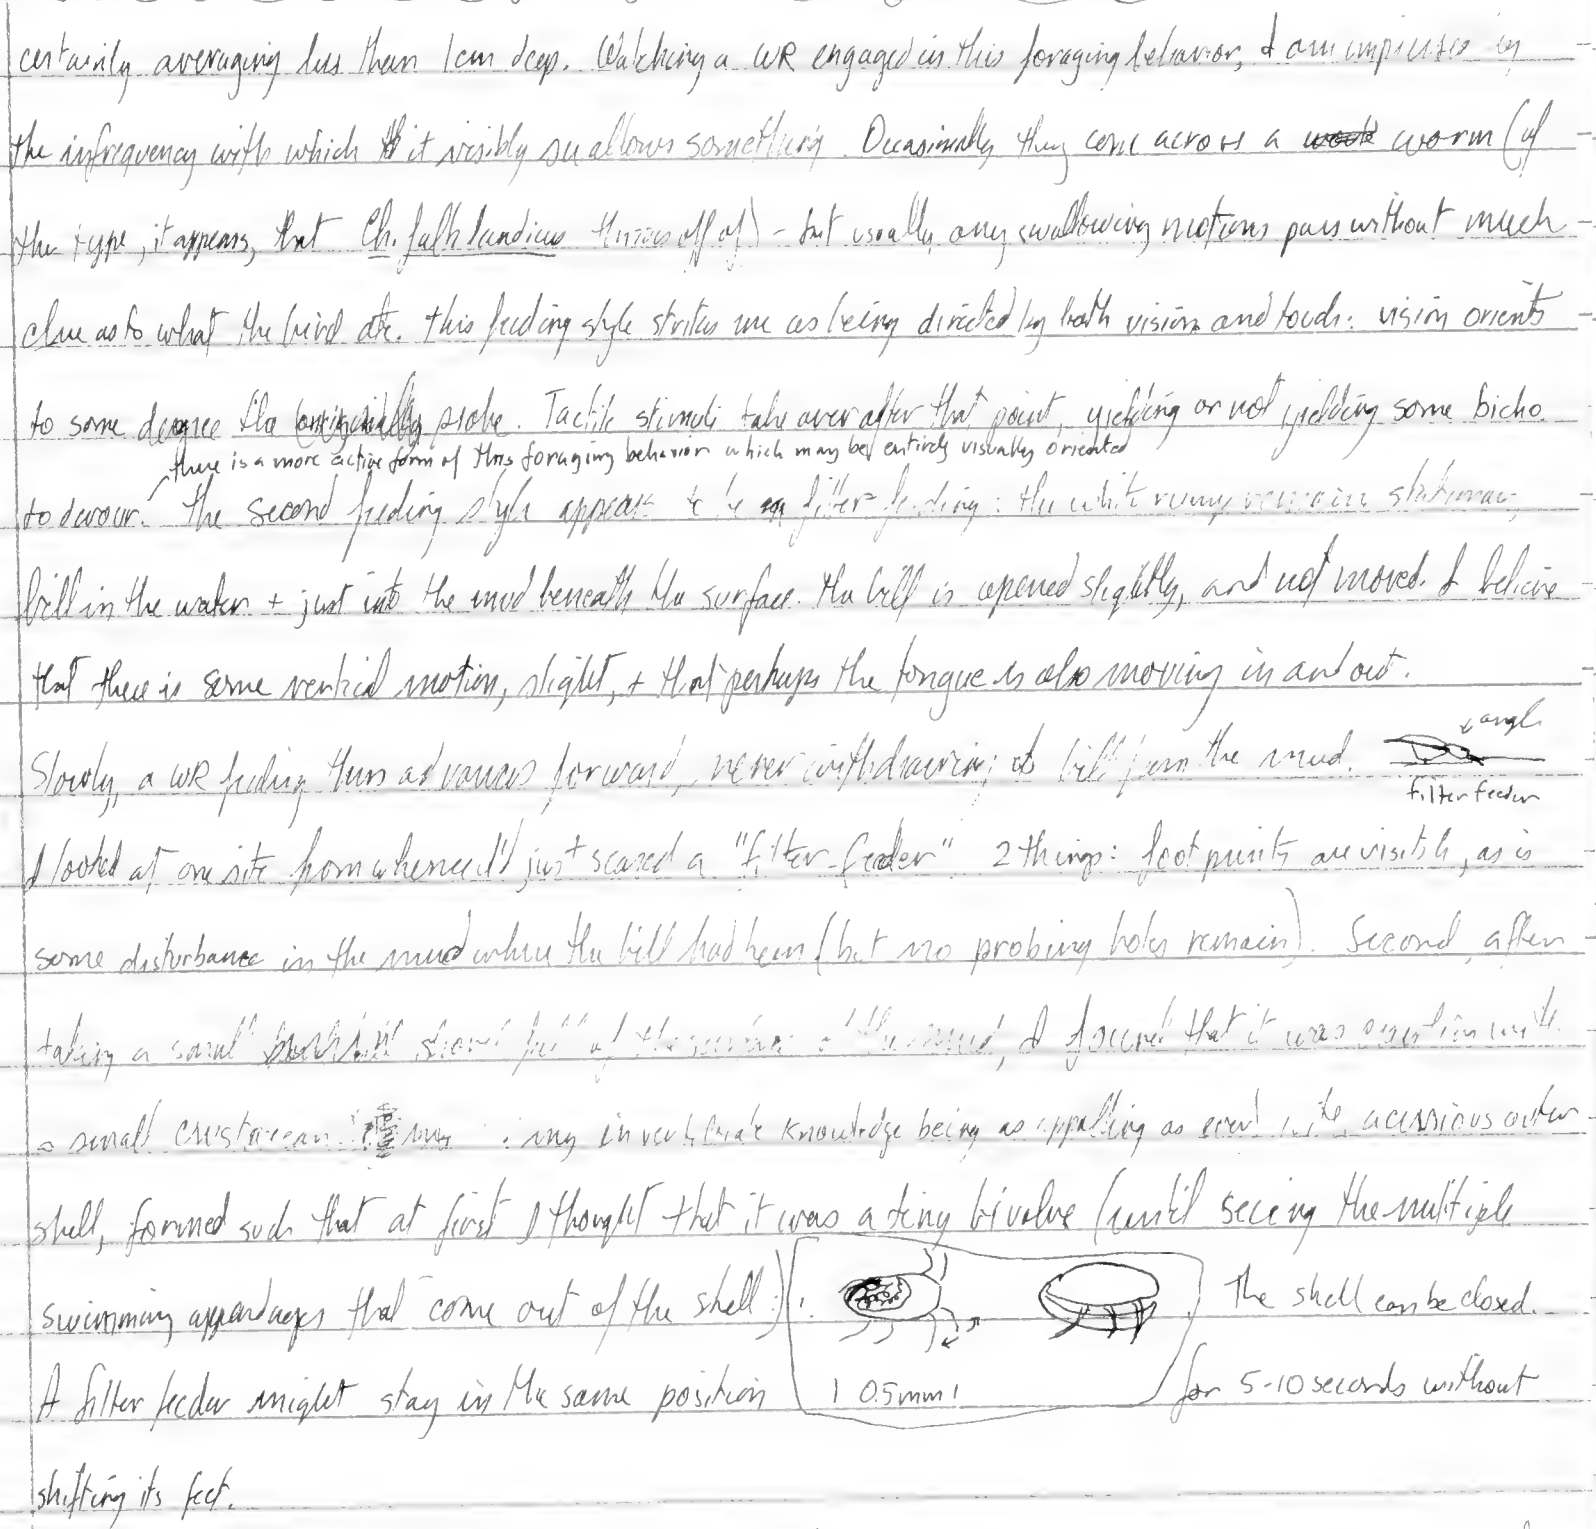 certainly averaging less than 1cm deep. Watching a WR engaged in this foraging behavior, I am impressed by
the infrequency with which it visibly swallows something. Occasionally they come across a worm (of
the type, it appears, that Ch. falklandicus throws off of) - but usually any swallowing motions pass without much
clue as to what the bird ate. This feeding style strikes me as being directed by both vision and touch: vision orients
to some degree the probe. Tactile stimuli take over after that point, yielding or not yielding some bicho
there is a more active form of this foraging behavior which may be entirely visually oriented
to devour. The second feeding style appears to be filter-feeding: the white rump remains stationary,
bill in the water + just into the mud beneath the surface. The bill is opened slightly, and not moved. I believe
that there is some vertical motion, slight, + that perhaps the tongue is also moving in and out.
angle
Slowly, a WR feeding thus advances forward, never withdrawing its bill from the mud.
filter feeder
I looked at one site from whence I'd just scared a "filter-feeder" 2 things: foot prints are visible, as is
some disturbance in the mud where the bill had been (but no probing holes remain). Second, after
taking a small shovel full of the surface of the mud, I found that it was with
a small crustacean : my invertebrate knowledge being as appalling as ever, outer
shell, formed such that at first I thought that it was a tiny bivalve (until seeing the multiple
swimming appendages that come out of the shell). The shell can be closed.
A filter feeder might stay in the same position 0.5mm for 5-10 seconds without
shifting its feet.